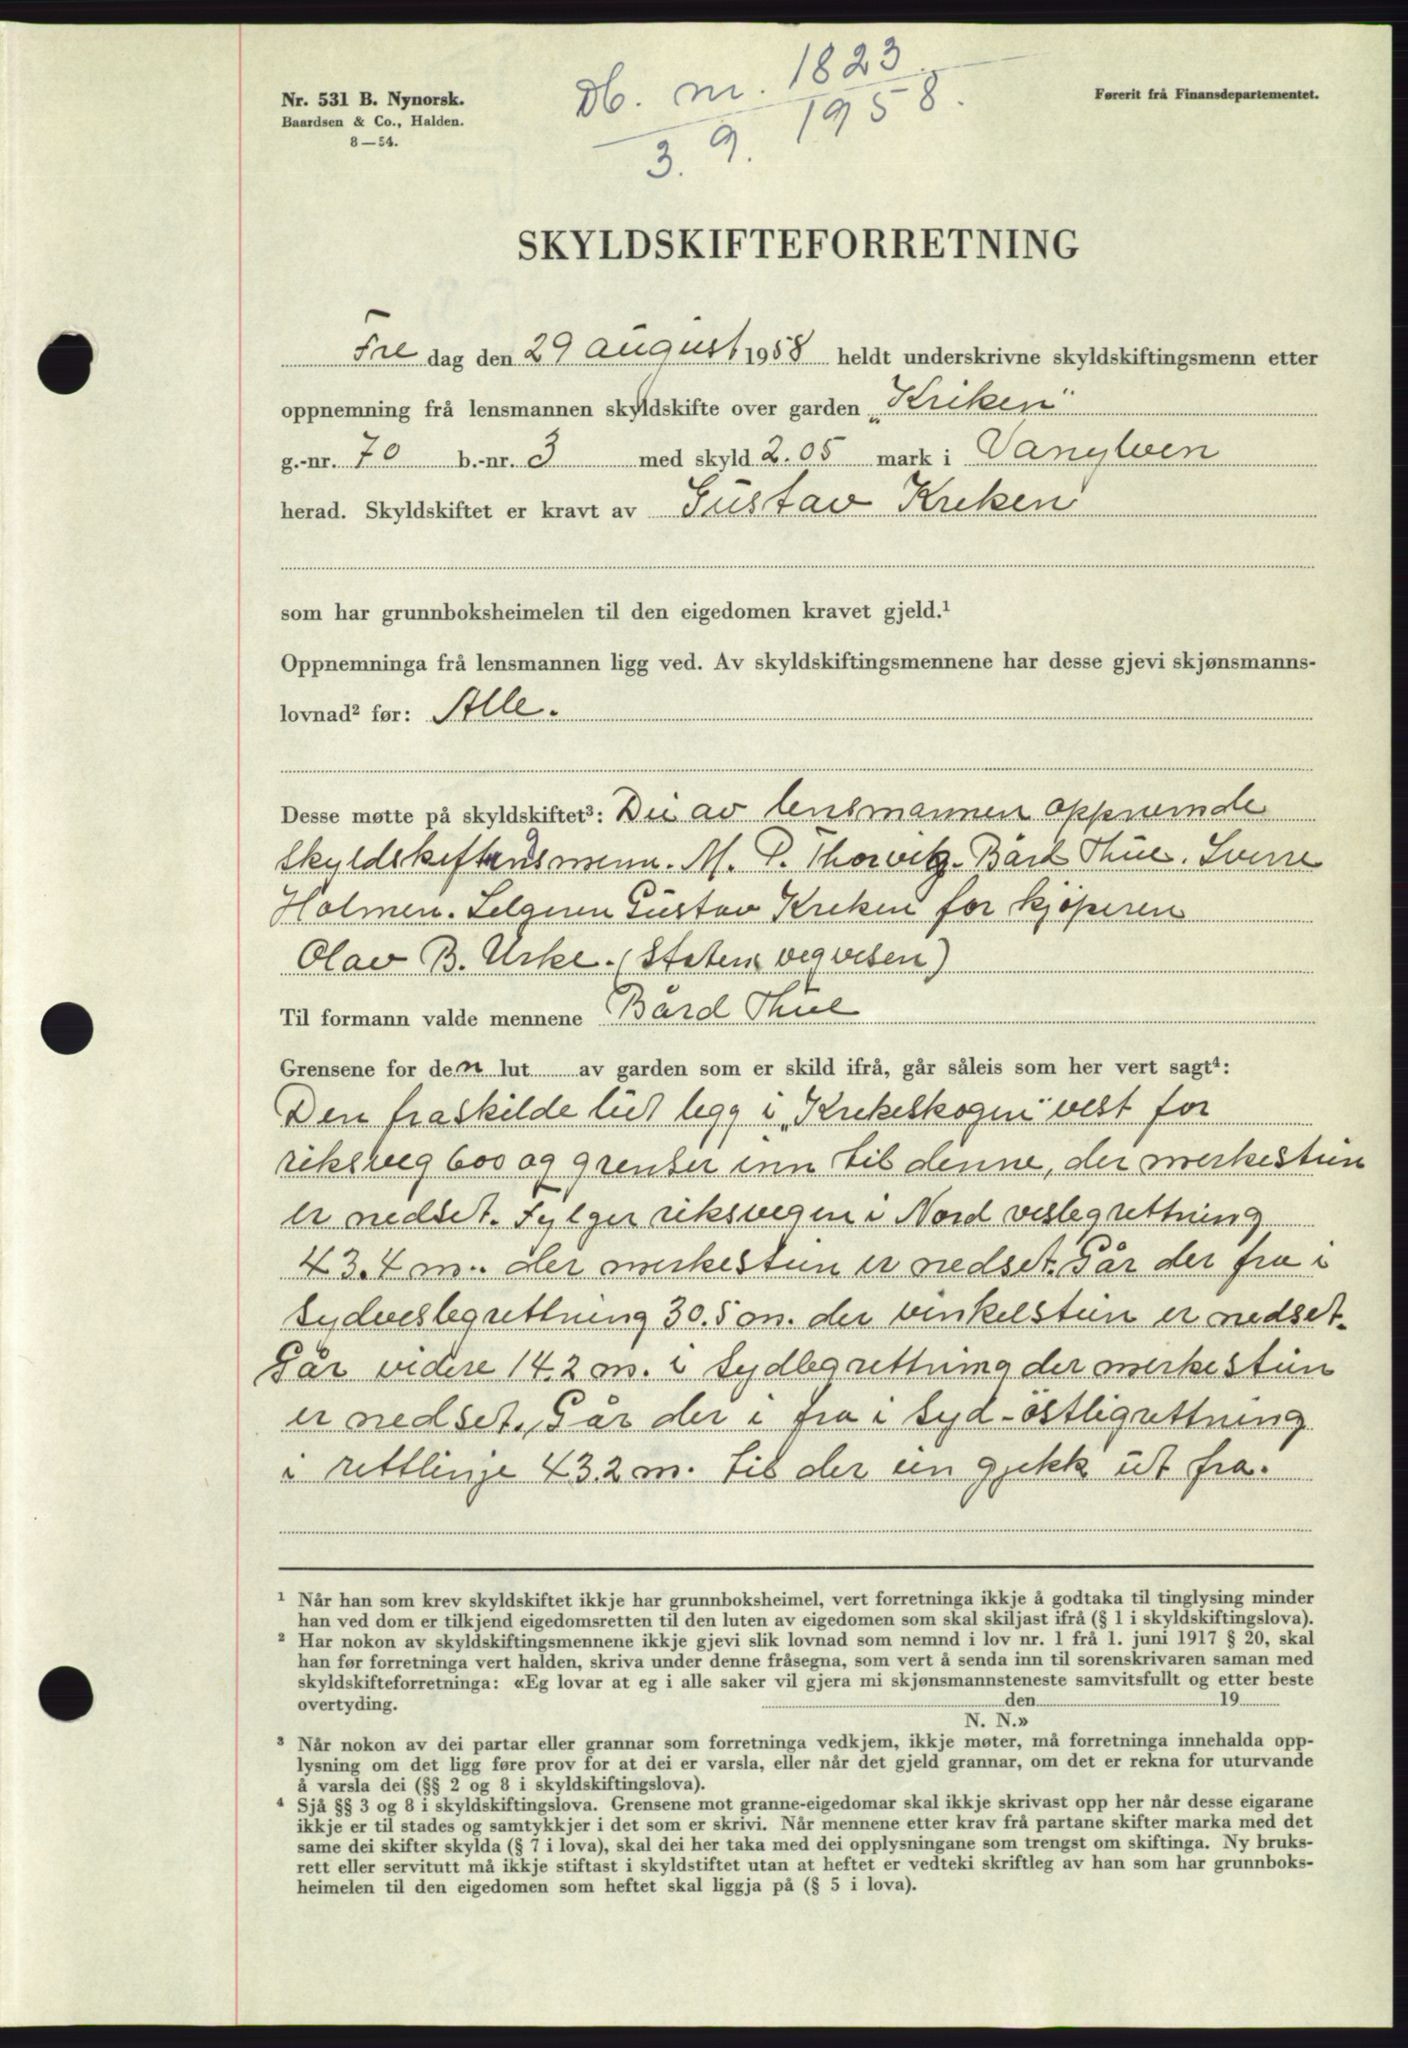 Nr. 531 B. Nynorsk.
Baardsen & Co., Halden.
8—54.
Db. nr. 1823
3. 9. 1958.
Førerit frå Finansdepartementet.
SKYLDSKIFTEFORRETNING
Fre dag den 29 august 1958 heldt underskrivne skyldskiftingsmenn etter
oppnemning frå lensmannen skyldskifte over garden „Kriken"
g.-nr. 70 b.-nr. 3 med skyld 2.05 mark i Vanylven
herad. Skyldskiftet er kravt av Gustav Kreken
som har grunnboksheimelen til den eigedomen kravet gjeld.¹
Oppnemninga frå lensmannen ligg ved. Av skyldskiftingsmennene har desse gjevi skjønsmanns-
lovnad² før: Alle.
Desse møtte på skyldskiftet³: Dei av lensmannen oppnemde
skyldskiftingsmenn. M. P. Thorvik. Bård Thue. Sverre
Holmen. Selgeren Gustav Kreken for kjøperen
Olav B. Urke. (Statens vegvesen)
Til formann valde mennene Bård Thue
Grensene for den lut av garden som er skild ifrå, går såleis som her vert sagt⁴:
Den fraskilde lut legg i „Krekeskogen" vest for
riksveg 600 og grenser inn til denne, der merkestein
er nedset. Fylger riksvegen i Nord vestegrettning
43.4 m.. der merkestein er nedset. Går der fra i
Sydvestegrettning 30.5 m. der vinkelstein er nedset.
Går videre 14.2 m. i Sydlegrettning der merkestein
er nedset. Går der i fra i Syd-östligrettning
i rettlinje 43.2 m. til der ein gjekk ut fra.
¹ Når han som krev skyldskiftet ikkje har grunnboksheimel, vert forretninga ikkje å godtaka til tinglysing minder
han ved dom er tilkjend eigedomsretten til den luten av eigedomen som skal skiljast ifrå (§ 1 i skyldskiftingslova).
² Har nokon av skyldskiftingsmennene ikkje gjevi slik lovnad som nemnd i lov nr. 1 frå 1. juni 1917 § 20, skal
han før forretninga vert halden, skriva under denne fråsegna, som vert å senda inn til sorenskrivaren saman med
skyldskifteforretninga: «Eg lovar at eg i alle saker vil gjera mi skjønsmannsteneste samvitsfullt og etter beste
overtyding. den 19
N. N.»
³ Når nokon av dei partar eller grannar som forretninga vedkjem, ikkje møter, må forretninga innehalda opp-
lysning om det ligg føre prov for at dei er varsla, eller når det gjeld grannar, om det er rekna for uturvande
å varsla dei (§§ 2 og 8 i skyldskiftingslova).
⁴ Sjå §§ 3 og 8 i skyldskiftingslova. Grensene mot granne-eigedomar skal ikkje skrivast opp her når desse eigarane
ikkje er til stades og samtykkjer i det som er skrivi. Når mennene etter krav frå partane skifter marka med det
same dei skifter skylda (§ 7 i lova), skal dei her taka med dei opplysningane som trengst om skiftinga. Ny bruks-
rett eller servitutt må ikkje stiftast i skyldstiftet utan at heftet er vedteki skriftleg av han som har grunnboks-
heimelen til den eigedomen som heftet skal liggja på (§ 5 i lova).